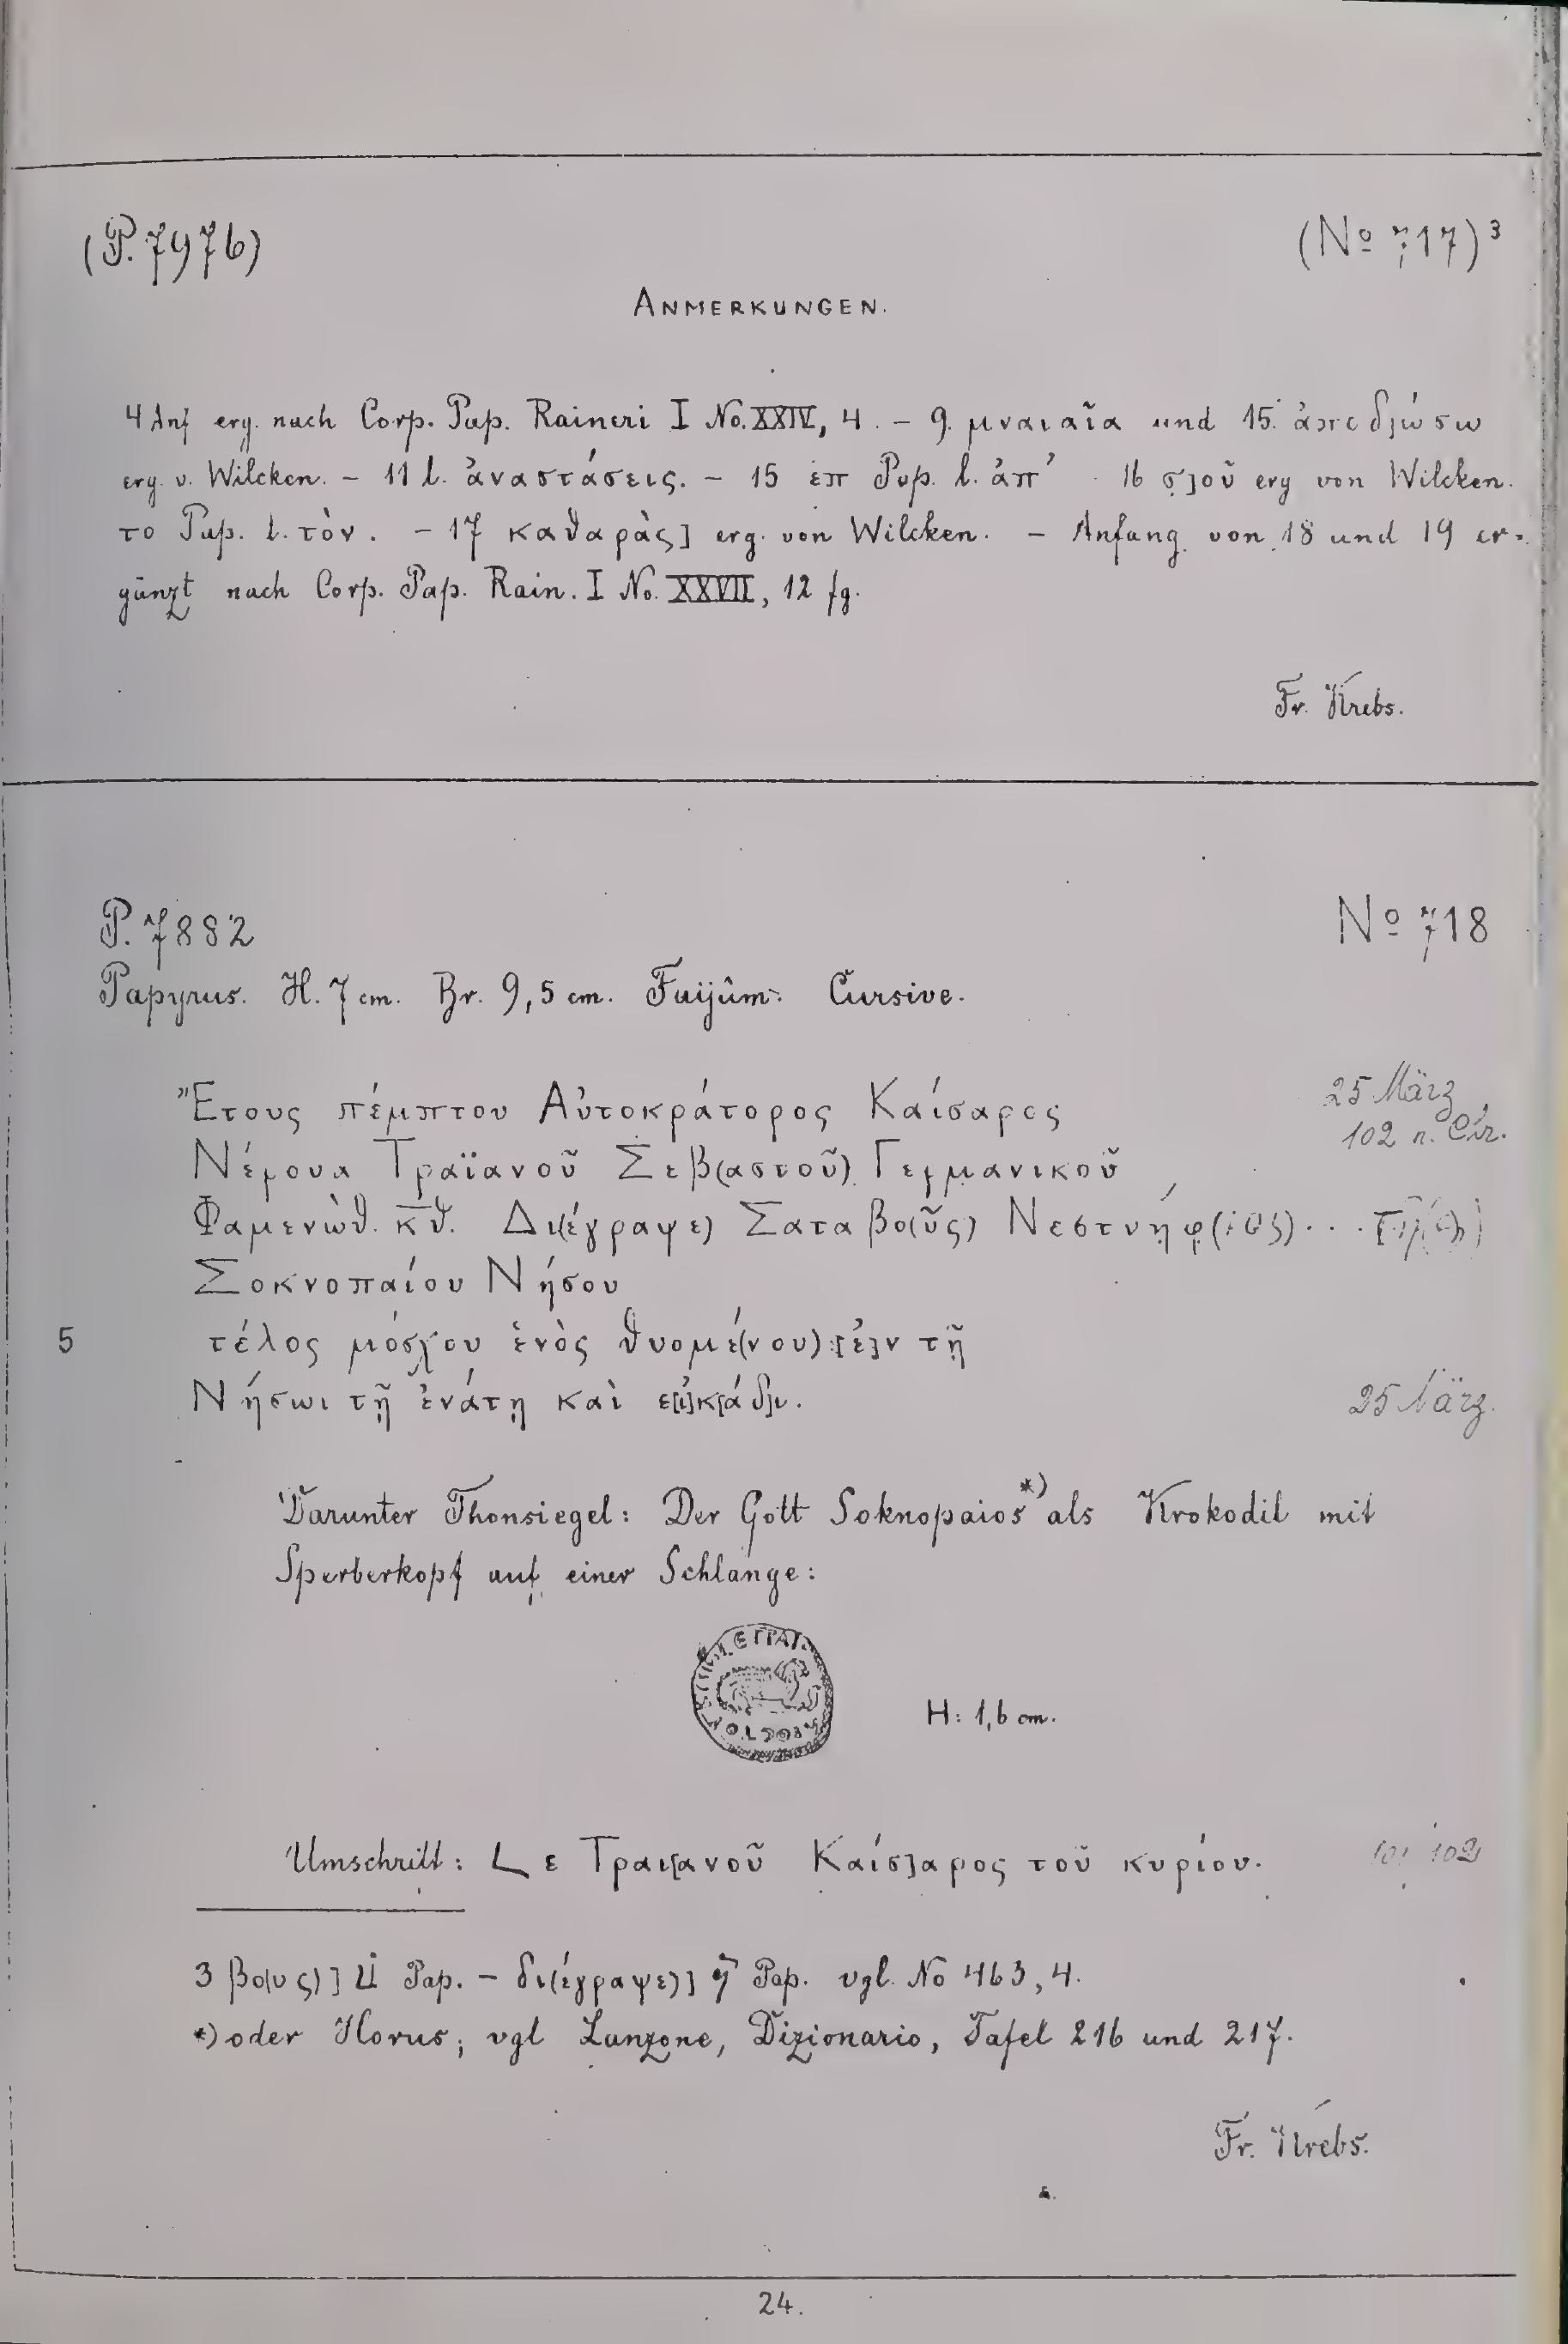 (P. 7976)
(No 717)³
ANMERKUNGEN.
4 Anf erg. nach Corp. Pap. Raineri I No. XXIV, 4. – 9. μναιαῖα und 15. ἀποδ]ώσω
erg. v. Wilcken. – 11 l. ἀναστάσεις. – 15 επ Pap. l. ἀπ' 16 σ]οῦ erg von Wilcken.
το Pap. l. τὸν. – 17 καθαρὰς] erg. von Wilcken. – Anfang von 18 und 19 er-
gänzt nach Corp. Pap. Rain. I No. XXVII, 12 fg.
Fr. Krebs.
P. 7882
No 718
Papyrus. H. 7 cm. Br. 9,5 cm. Faijûm. Cursive.
Ἔτους πέμπτου Αὐτοκράτορος Καίσαρος
25 März
102 n. Chr.
Νέρουα Τραϊανοῦ Σεβ(αστοῦ) Γερμανικοῦ
Φαμενὼθ κθ. Δι(έγραψε) Σαταβο(ῦς) Νεστνήφ(ιος)
Σοκνοπαίου Νήσου
5 τέλος μόσχου ἑνὸς θυομέ(νου) [ἐ]ν τῇ
Νήσωι τῇ ἐνάτῃ καὶ ε[ἰ]κ[άδ]ι.
25 März.
Darunter Thonsiegel: Der Gott Soknopaios*) als Krokodil mit
Sperberkopf auf einer Schlange:
H: 1,6 cm.
Umschrift: L ε Τραι[ανοῦ Καίσ]αρος τοῦ κυρίου.
101/102
3 βο(υς)] Pap. – δι(έγραψε)] Pap. vgl. No 463, 4.
*) oder Horus; vgl Lanzone, Dizionario, Tafel 216 und 217.
Fr. Krebs.
24.